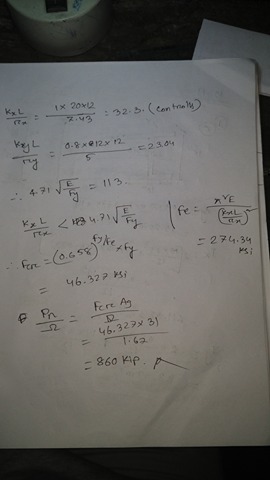 KxL/rx = 1×20×12/7.43 = 32.3. (controls)
KyL/ry = 0.8×12×12/5 = 23.04
∴ 4.71 √E/Fy = 113.
KxL/rx < 4.71 √E/Fy
Fe = π²E/(KxL/rx)²
= 274.34 ksi
∴ Fcr = (0.658)^Fy/Fe × Fy
= 46.327 ksi
Pn/Ω = Fcr Ag/Ω
= 46.327×31/1.67
= 860 kip.